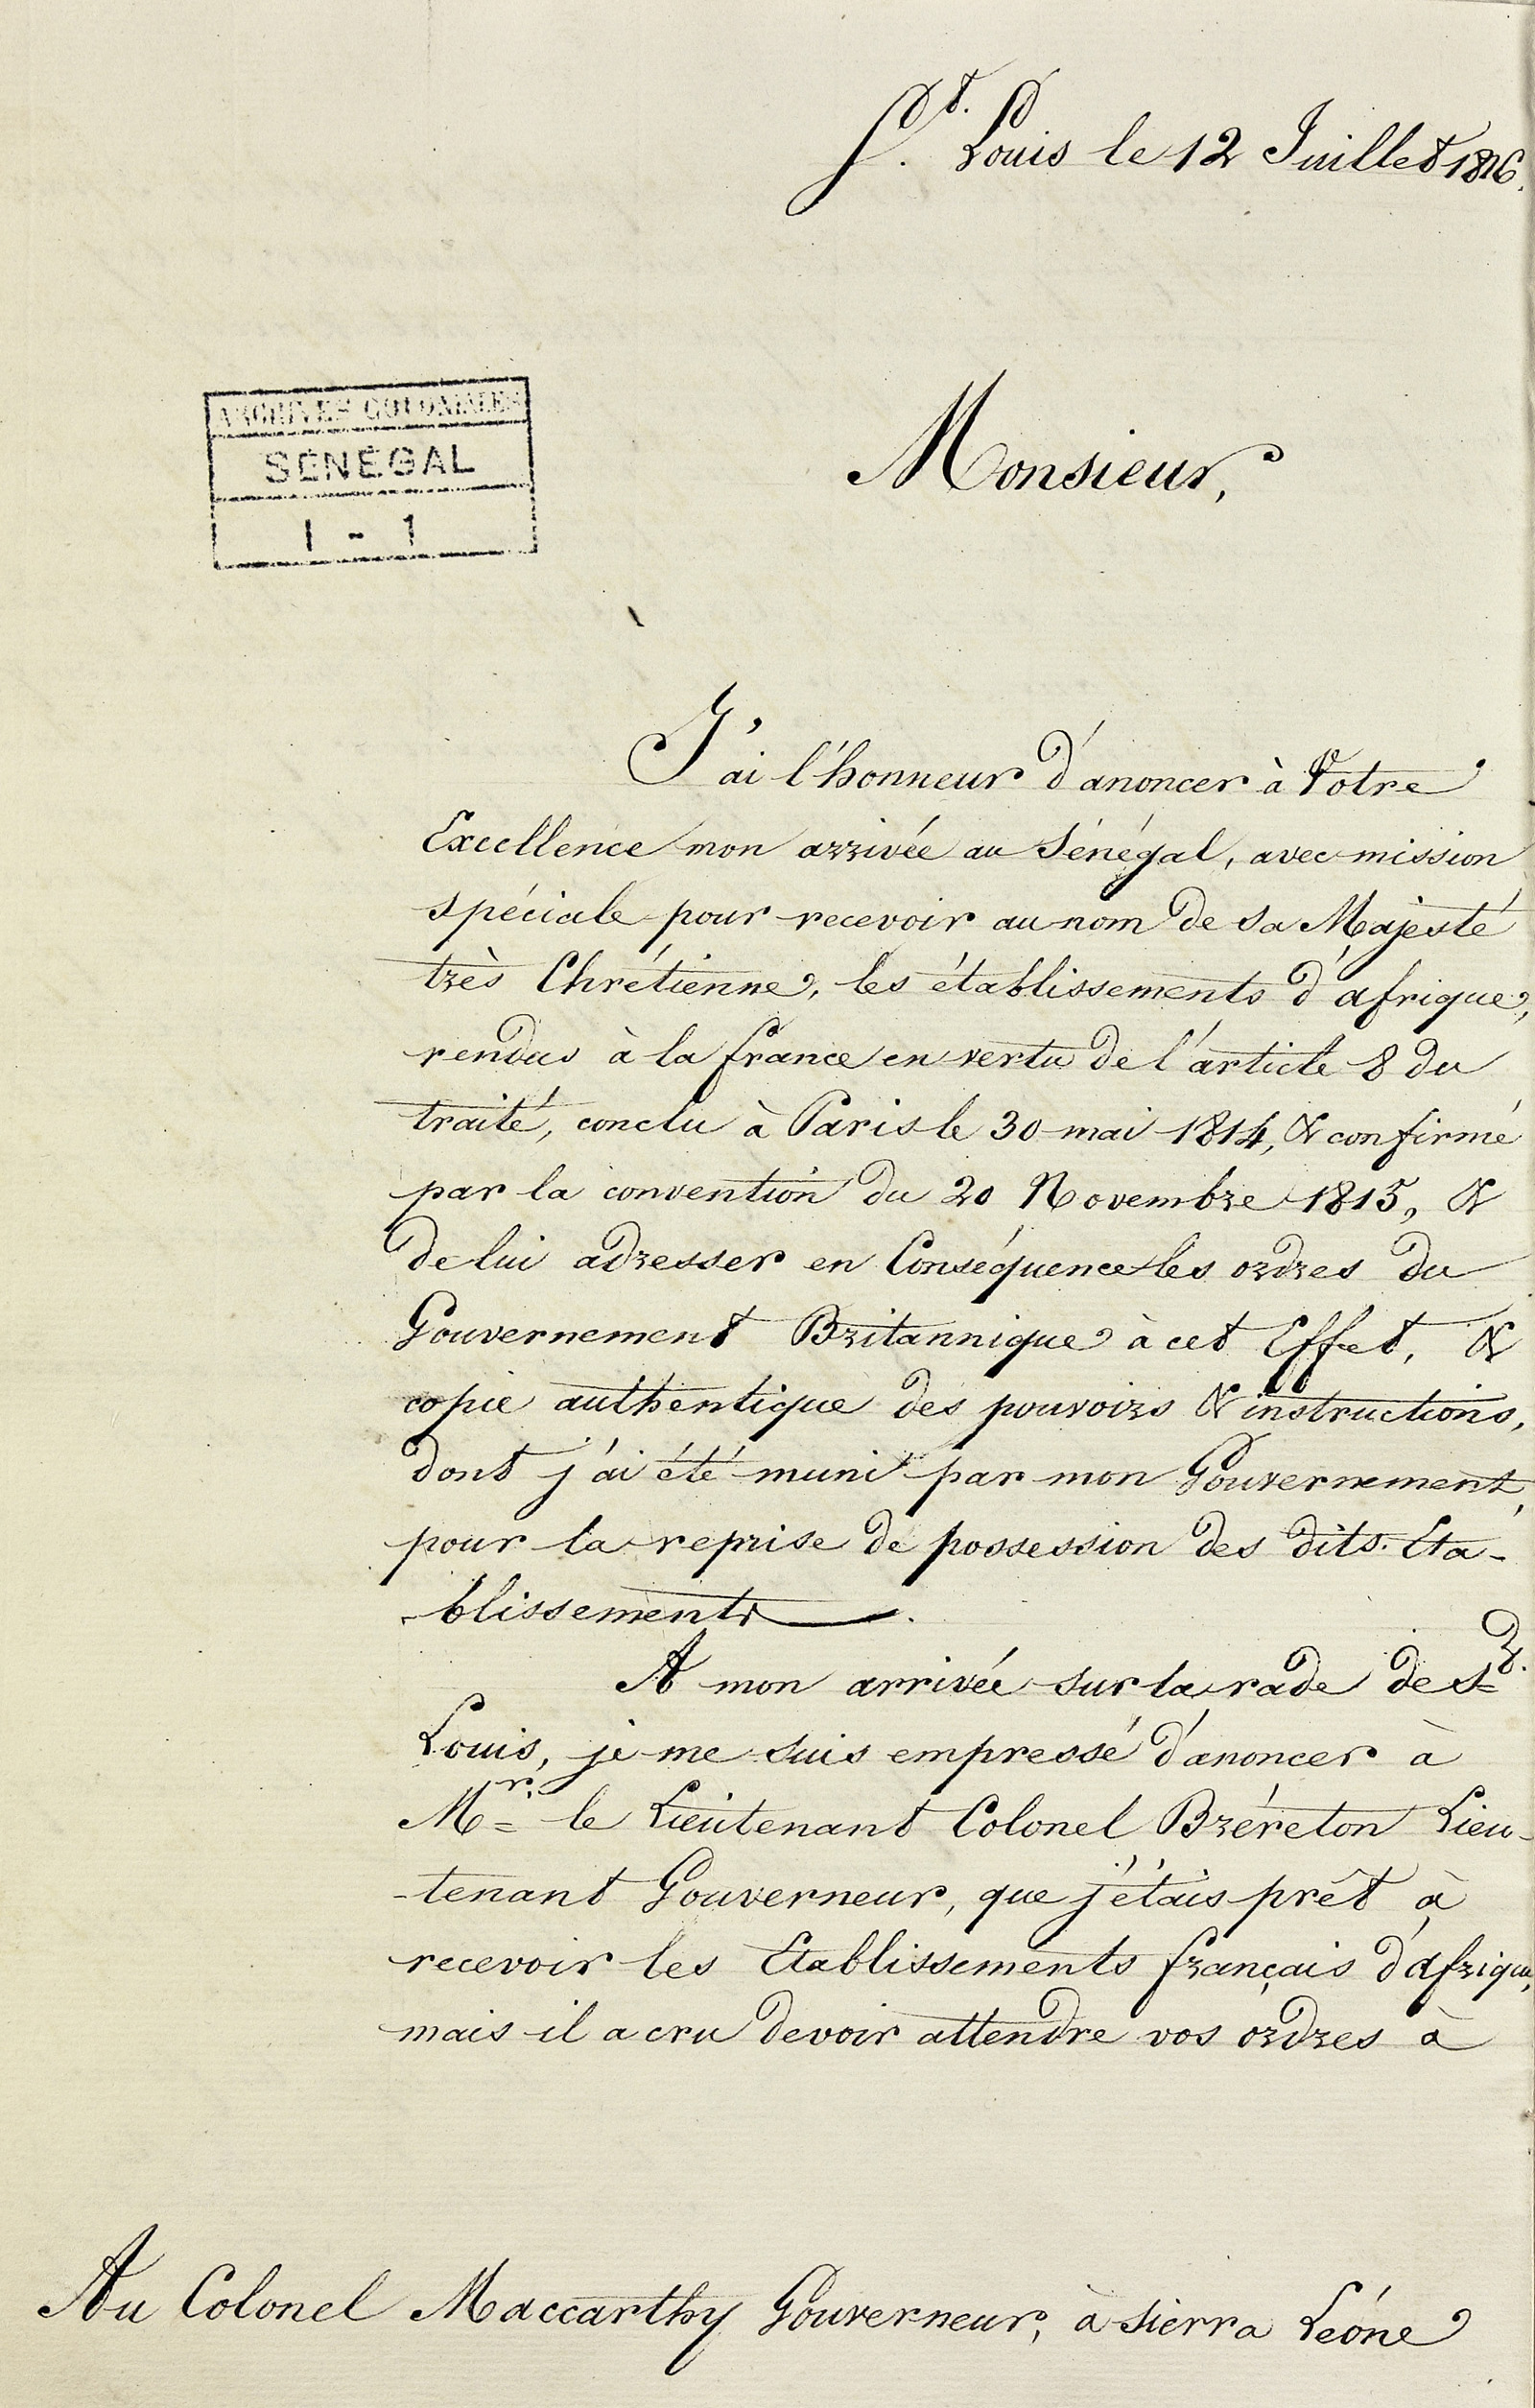 St. Louis le 12 Juillet 1816.
ARCHIVES COLONIALES
SÉNÉGAL
I - 1
Monsieur,
J'ai l'honneur d'anoncer à Votre
Excellence mon arrivée au Sénégal, avec mission
spéciale pour recevoir au nom de sa Majesté
très Chrétienne, les établissements d'afrique,
rendus à la france en vertu de l'article 8 du
traité, conclu à Paris le 30 mai 1814, & confirmé
par la convention du 20 Novembre 1815, &
de lui adresser en Conséquence les ordres du
Gouvernement Britannique à cet Effet, &
copie authentique des pouvoirs & instructions,
dont j'ai été muni par mon Gouvernement,
pour la reprise de possession des dits. Eta-
-blissements.
A mon arrivée sur la rade de St.
Louis, je me suis empressé d'anoncer à
Mr. le Lieutenant Colonel Bréreton Lieu-
-tenant Gouverneur, que j'étais prêt à
recevoir les Etablissements français d'afrique,
mais il a cru devoir attendre vos ordres à
Au Colonel Maccarthy Gouverneur, à Sierra Léone